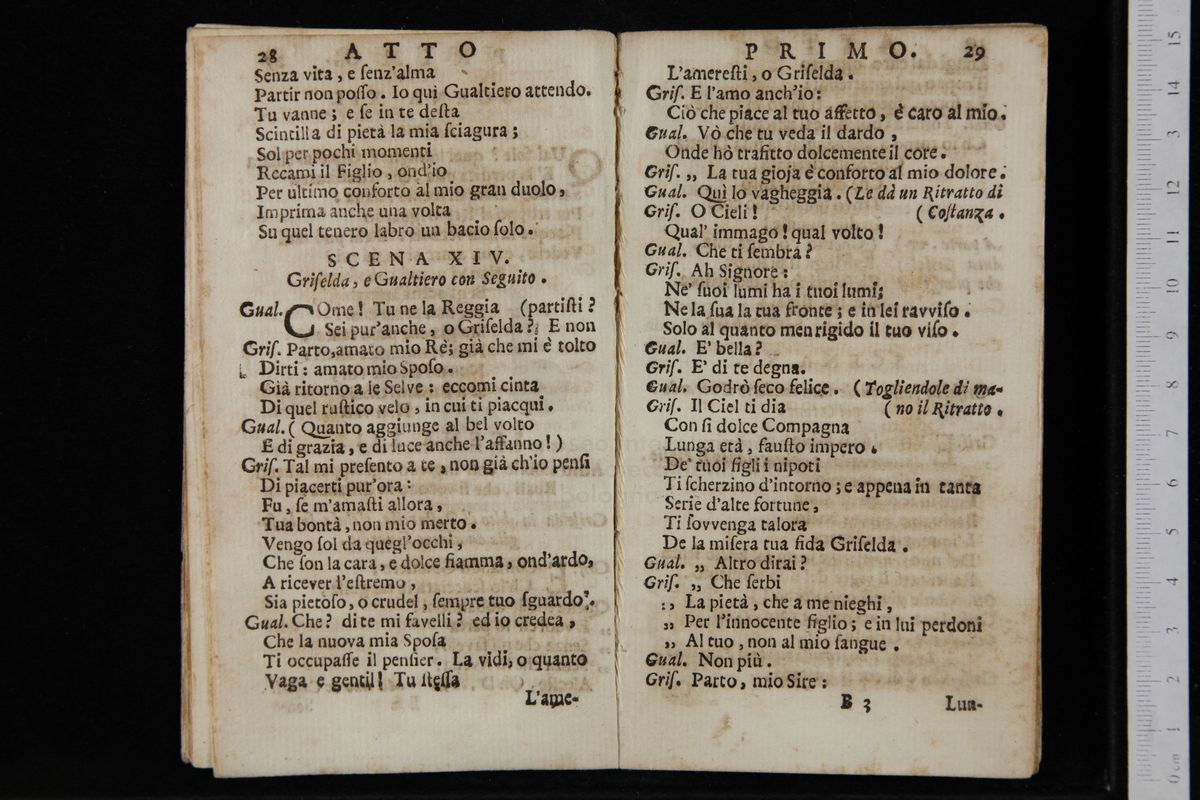 28 ATTO
Senza vita, e ſenz'alma
Partir non poſſo. Io qui Gualtiero attendo.
Tu vanne; e ſe in te deſta
Scintilla di pietà la mia ſciagura;
Sol per pochi momenti
Recami il Figlio, ond'io
Per ultimo conforto al mio gran duolo,
Imprima anche una volta
Su quel tenero labro un bacio ſolo.
SCENA XIV.
Griſelda, e Gualtiero con Seguito.
Gual. COme! Tu ne la Reggia (partiſti?
Sei pur'anche, o Griſelda? E non
Griſ. Parto, amato mio Rè; già che mi è tolto
Dirti: amato mio Spoſo.
Già ritorno a le Selve: eccomi cinta
Di quel ruſtico velo, in cui ti piacqui.
Gual. (Quanto aggiunge al bel volto
E di grazia, e di luce anche l'affanno!)
Griſ. Tal mi preſento a te, non già ch'io penſi
Di piacerti pur'ora:
Fu, ſe m'amaſti allora,
Tua bontà, non mio merto.
Vengo ſol da quegl'occhi,
Che ſon la cara, e dolce fiamma, ond'ardo,
A ricever l'eſtremo,
Sia pietoſo, o crudel, ſempre tuo ſguardo.
Gual. Che? di te mi favelli? ed io credea,
Che la nuova mia Spoſa
Ti occupaſſe il penſier. La vidi, o quanto
Vaga e gentil! Tu ſteſſa
L'ame-
PRIMO. 29
L'amereſti, o Griſelda.
Griſ. E l'amo anch'io:
Ciò che piace al tuo affetto, è caro al mio.
Gual. Vò che tu veda il dardo,
Onde hò trafitto dolcemente il core.
Griſ. „ La tua gioja è conforto al mio dolore.
Gual. Quì lo vagheggia. (Le dà un Ritratto di
Griſ. O Cieli! (Coſtanza.
Qual' immago! qual volto!
Gual. Che ti ſembra?
Griſ. Ah Signore:
Ne' ſuoi lumi ha i tuoi lumi;
Ne la ſua la tua fronte; e in lei ravviſo
Solo al quanto men rigido il tuo viſo.
Gual. E' bella?
Griſ. E' di te degna.
Gual. Godrò ſeco felice. (Togliendole di ma-
Griſ. Il Ciel ti dia (no il Ritratto.
Con ſi dolce Compagna
Lunga età, fauſto impero.
De' tuoi figli i nipoti
Ti ſcherzino d'intorno; e appena in tanta
Serie d'alte fortune,
Ti ſovvenga talora
De la miſera tua fida Griſelda.
Gual. „ Altro dirai?
Griſ. „ Che ſerbi
„ La pietà, che a me nieghi,
„ Per l'innocente figlio; e in lui perdoni
„ Al tuo, non al mio ſangue.
Gual. Non più.
Griſ. Parto, mio Sire:
B 3 Lun-
15
14
13
12
11
10
9
8
7
6
5
4
3
2
1
0 cm